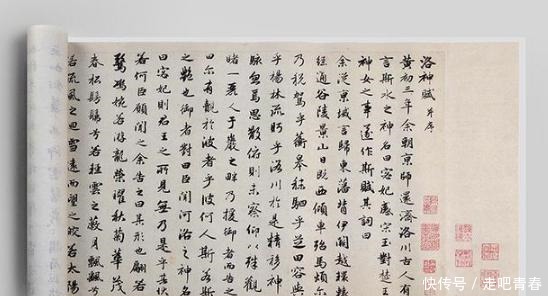 洛神賦 并序
黃初三年余朝京師還濟洛川古人有
言斯水之神名曰宓妃感宋玉對楚王
神女之事遂作斯賦其詞曰
余從京域言歸東藩背伊闕越轘轅
經通谷陵景山日既西傾車殆馬煩尔
乃稅駕乎蘅皋秣駟乎芝田容與
乎楊林流眄乎洛川於是精移神
駭忽焉思散俯則未察仰以殊觀
睹一麗人于巖之畔乃援御者而告之
曰尔有覿於彼者乎彼何人斯若
之艷也御者對曰臣聞河洛之神名
曰宓妃則君王之所見無乃是乎其狀
若何臣願聞之余告之曰其形也翩若
驚鴻婉若游龍榮曜秋菊華茂
春松髣髴兮若輕雲之蔽月飄飖兮
若流風之迴雪遠而望之皎若太陽
快传号 / 走吧青春